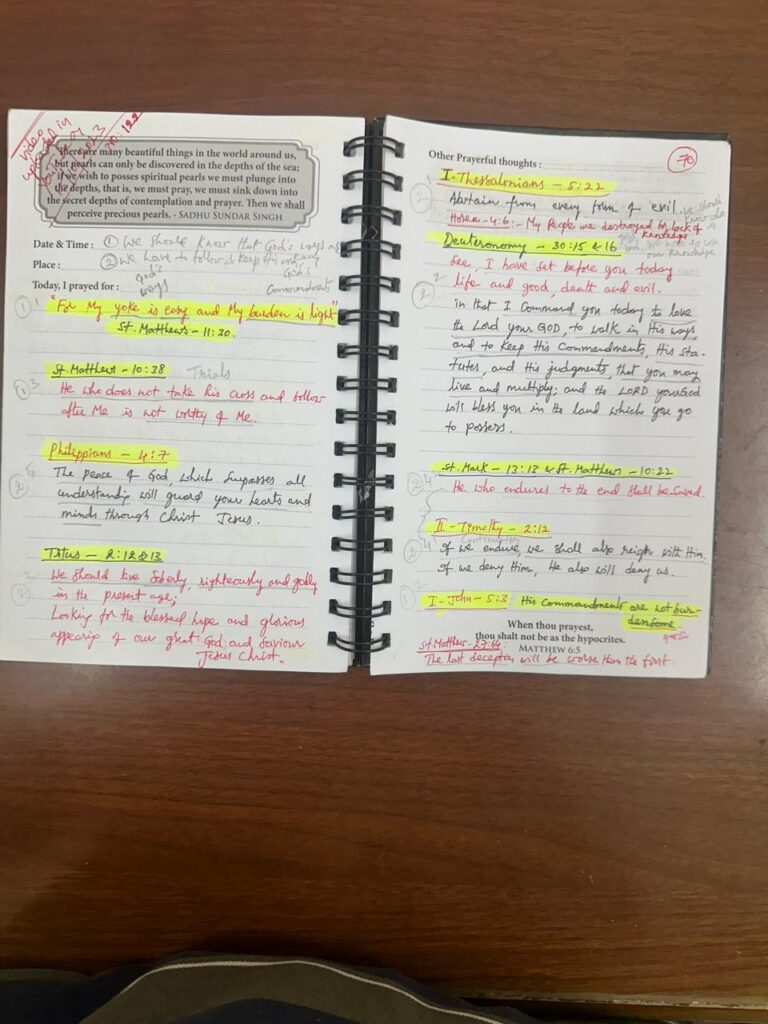 video
uploaded in
No: 122
There are many beautiful things in the world around us,
but pearls can only be discovered in the depths of the sea;
if we wish to posses spiritual pearls we must plunge into
the depths, that is, we must pray, we must sink down into
the secret depths of contemplation and prayer. Then we shall
perceive precious pearls. - SADHU SUNDAR SINGH
Date & Time : ① We should know that God's ways
Place : ② We have to follow & keep
God's God's
Today, I prayed for : ways Commandments
"For My yoke is easy and My burden is light"
St. Matthews - 11:30.
St. Matthews - 10:38 Trials
He who does not take his cross and follow
after Me is not worthy of Me.
Philippians - 4:7
The peace of God, which surpasses all
understanding will guard your hearts and
minds through Christ Jesus.
Titus - 2:12 & 13
We should live soberly, righteously and godly
in the present age;
Looking for the blessed hope and glorious
appearing of our great God and Saviour
Jesus Christ.
Other Prayerful thoughts : 70
I - Thessalonians - 5:22
Abstain from every form of evil.
Hosea - 4:6 - My People are destroyed for lack of
knowledge
Deuteronomy - 30:15 & 16
See, I have set before you today
life and good, death and evil.
in that I Command you today to love
the Lord your GOD, to walk in His ways,
and to keep His Commandments, His Sta-
tutes, and His judgments, that you may
live and multiply; and the LORD your God
will bless you in the land which you go
to possess.
St. Mark - 13:13 & St. Matthews - 10:22
He who endures to the end shall be saved.
II - Timothy - 2:12
If we endure, we shall also reign with Him.
If we deny Him, He also will deny us.
I - John - 5:3 : His Commandments are not bur-
densome.
When thou prayest,
thou shalt not be as the hypocrites.
St. Matthew - 27:64: MATTHEW 6:5
The last deception will be worse than the first.